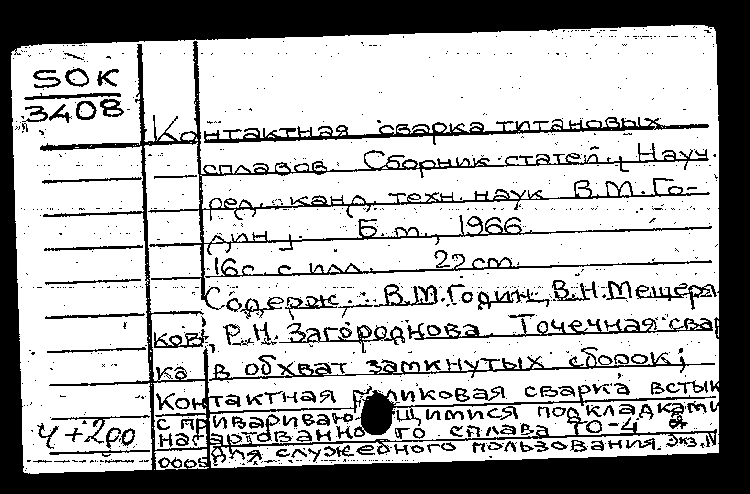 SOK
3408
Контактная сварка титановых
сплавов. Сборник статей. [Науч.
ред. канд. техн. наук В.М. Го-
дин]. Б.м., 1966.
16 с. с илл. 22 cm.
Содерж.: В.М. Годин, В.Н. Мещеря-
ков, Р.Н. Загороднова. Точечная свар
ка в обхват замкнутых сборок;
Контактная роликовая сварка встык
с привариваю щимися подкладками
нагартованно го сплава ТО-4
Ч+200
0005 Для служебного пользования. Экз. N